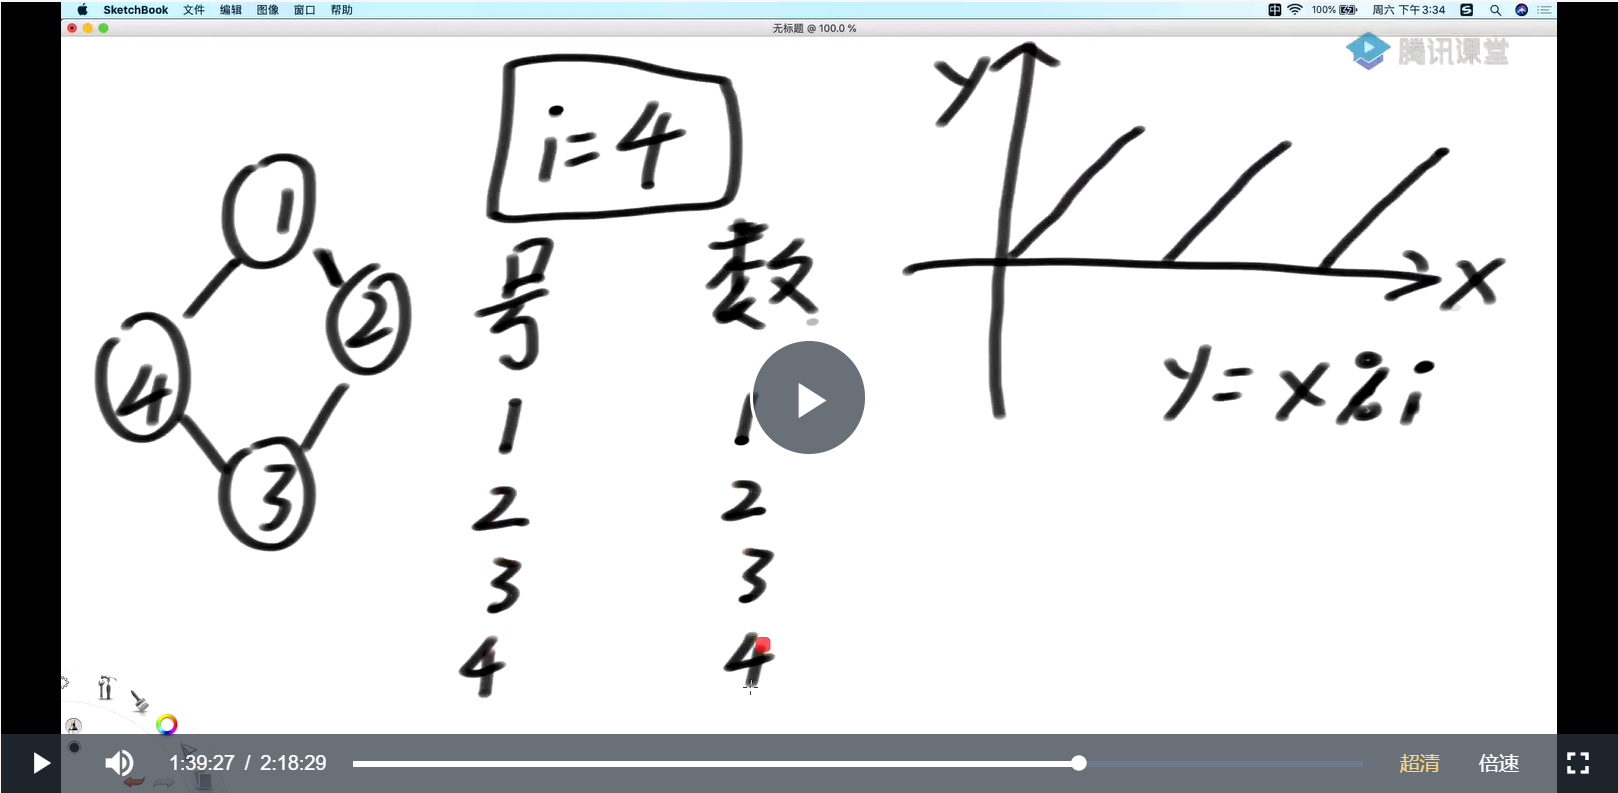 SketchBook 文件 编辑 图像 窗口 帮助
100% 周六 下午3:34
无标题 @ 100.0 %
腾讯课堂
i=4
y
x
1
2
4
3
号 数
1 1
2 2
3 3
4 4
y = x % i
1:39:27 / 2:18:29 超清 倍速